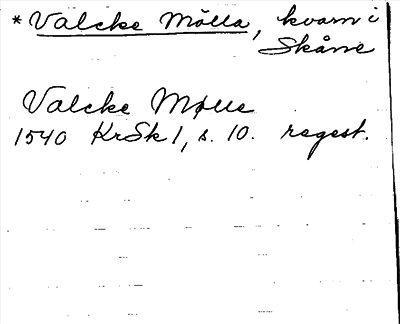 * Valcke Mölla, kvarn i
Skåne
Valcke Mølle
1540 KrSk 1, s. 10. regest.